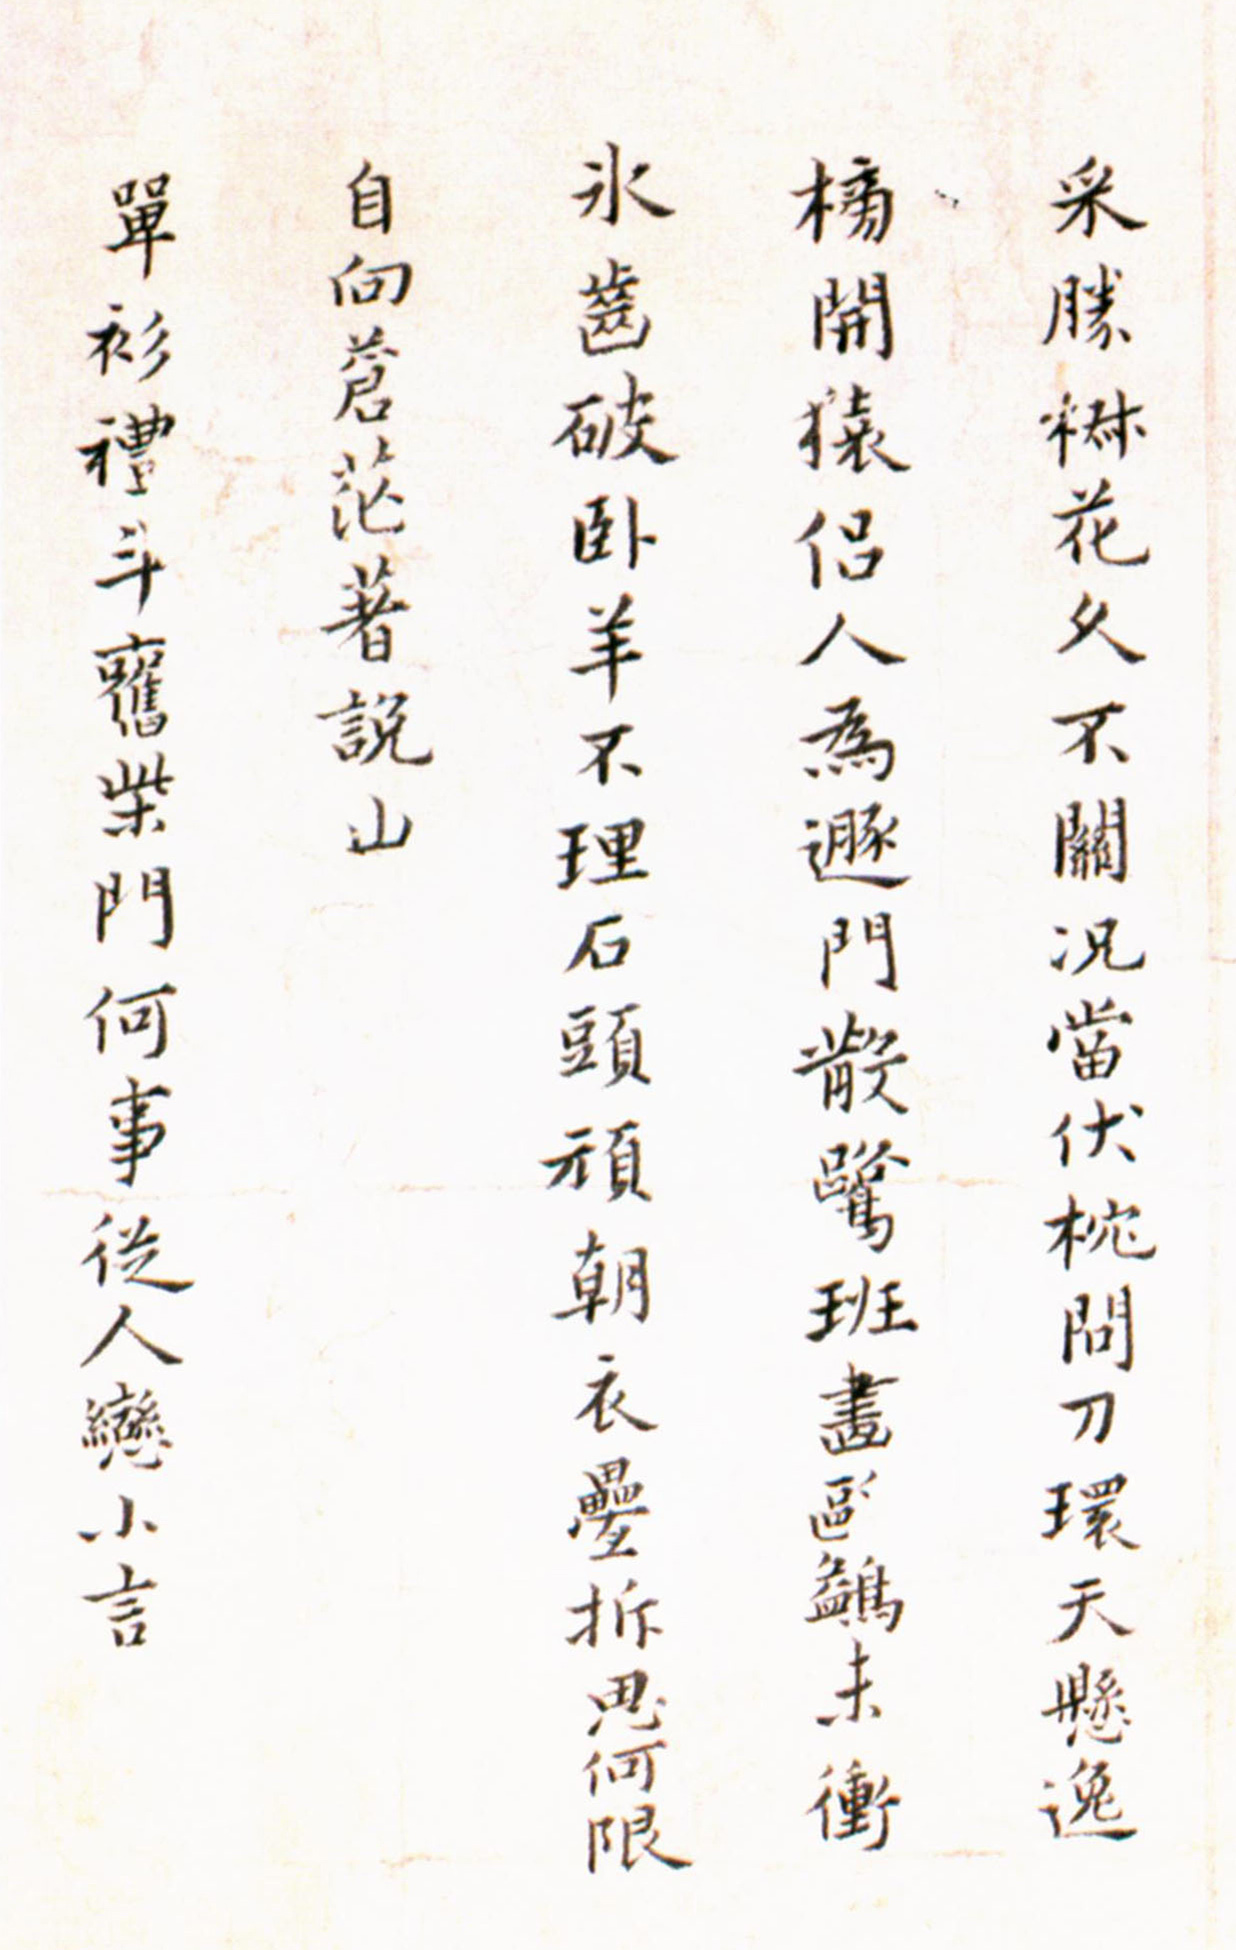 采勝椒花久不關況當伏枕問刀環天懸逸
開猿侶人為遯門散鷺班畫鷁未衝
氷齒破卧羊不理石頭頑朝衣疊拆思何限
自向蒼茫著說山
單衫禮斗舊柴門何事從人戀小言